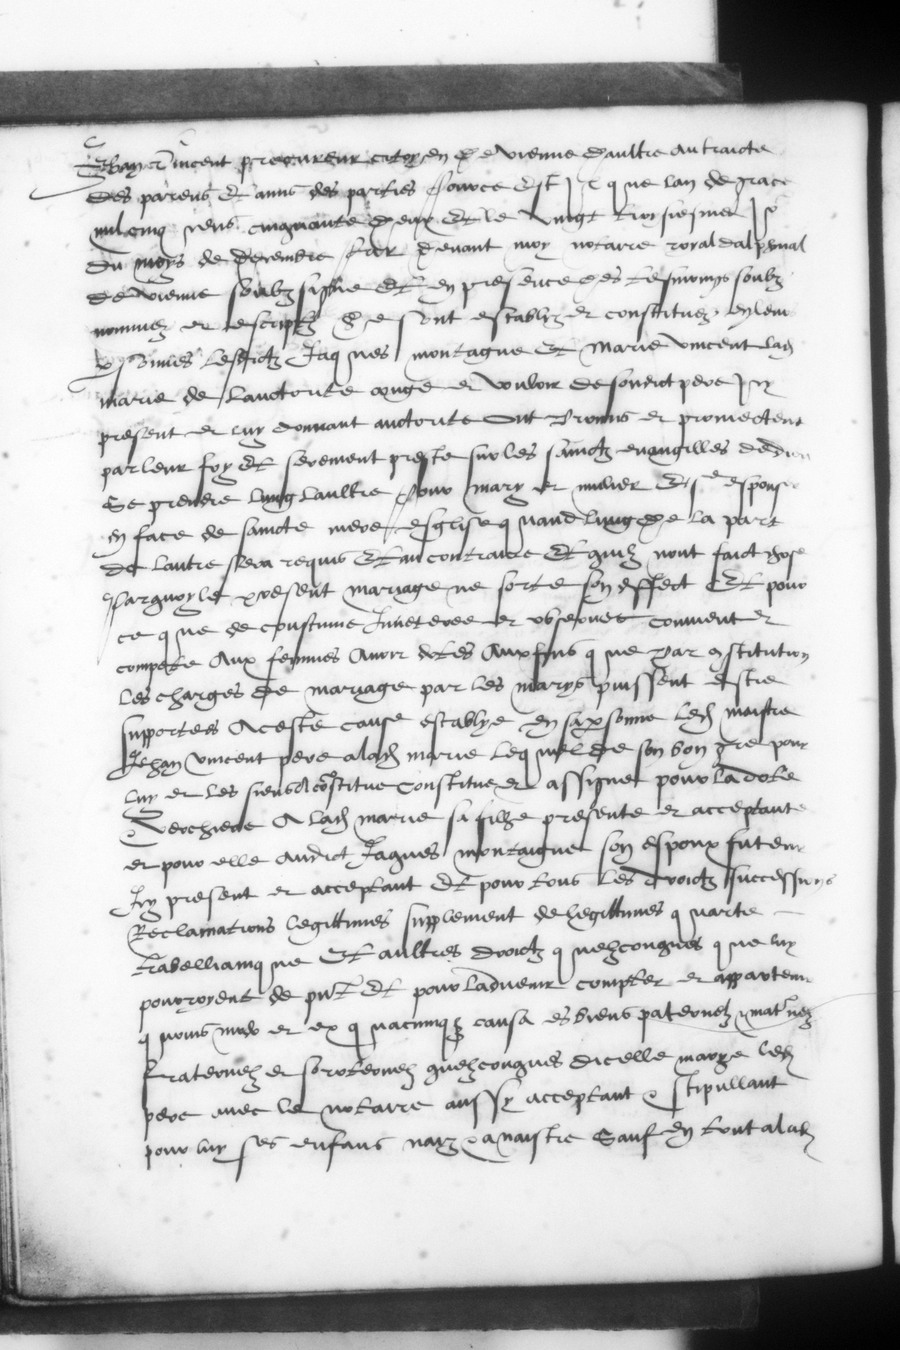 Jehan vincent procureur citoyen de vienne daultre au traicte
des parens et amis des parties pource est il que lan de grace
mil cinq cens cinquante deux et le vingt troysiesme jor
du moys de decembre par devant moy notaire royal dalphinal
de vienne soubz signe et en presence des tesmoings soubz
nommez et escriptz se sont establyz et constituez en leurs
personnes lesdictz Jaques montagne et marie vincent lad
marie de lauctorite conge et vouloir de sondict pere icy
present et luy donnant auctorite ont promis et promectent
par leur foy et serement preste sur les sainctz evangilles de dieu
se prendre lung laultre pour mary et mulier et se espouser
en face de saincte mere esglise quand lung de la part
de lautre sera requis et au contraire et quilz nont faict chose
parquoy le present mariage ne sorte son effect et pour
ce que de coustume inveteree et observee convient et
compete aux femmes avoir dotes aux fins que par constitution
les charges de mariage par les marys puissent estre
supportees a ceste cause establye en sa personne led maistre
Jehan vincent pere a lad marie lequel de son bon gre pour
luy et les siens a constitue constitue et assigne pour la dote
verchiere a lad marie sa filhe presente et acceptante
et pour elle audict Jaques montaigne son espoux futeur
Icy present et acceptant et pour tous les droictz successions
Reclamations legittimes supplement de legittimes quarte
trabellianique et aultres droictz quelzconques que luy
pourroyent de pnt et pour ladvenir compter et appartenir
quovis modo et ex quacumque causa es biens paternelz maternelz
fraternelz et sororternelz quelzconques dicelle marye led
pere avec le notaire aussy acceptant & stipullant
pour luy ses enfans naiz & a naistre sauf en tout a lad